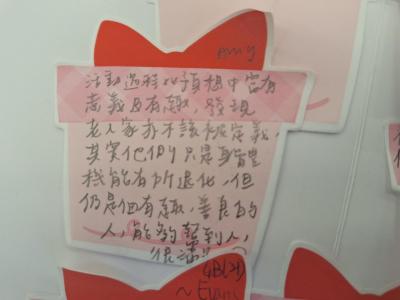 Amy
活動過程比預想中富有
意義且有趣,發現
老人家亦不該被定義,
其實他們只是身體
機能有所退化,但
仍是個有趣、善良的
人,能夠幫到人,
很滿
4B(21)
~E